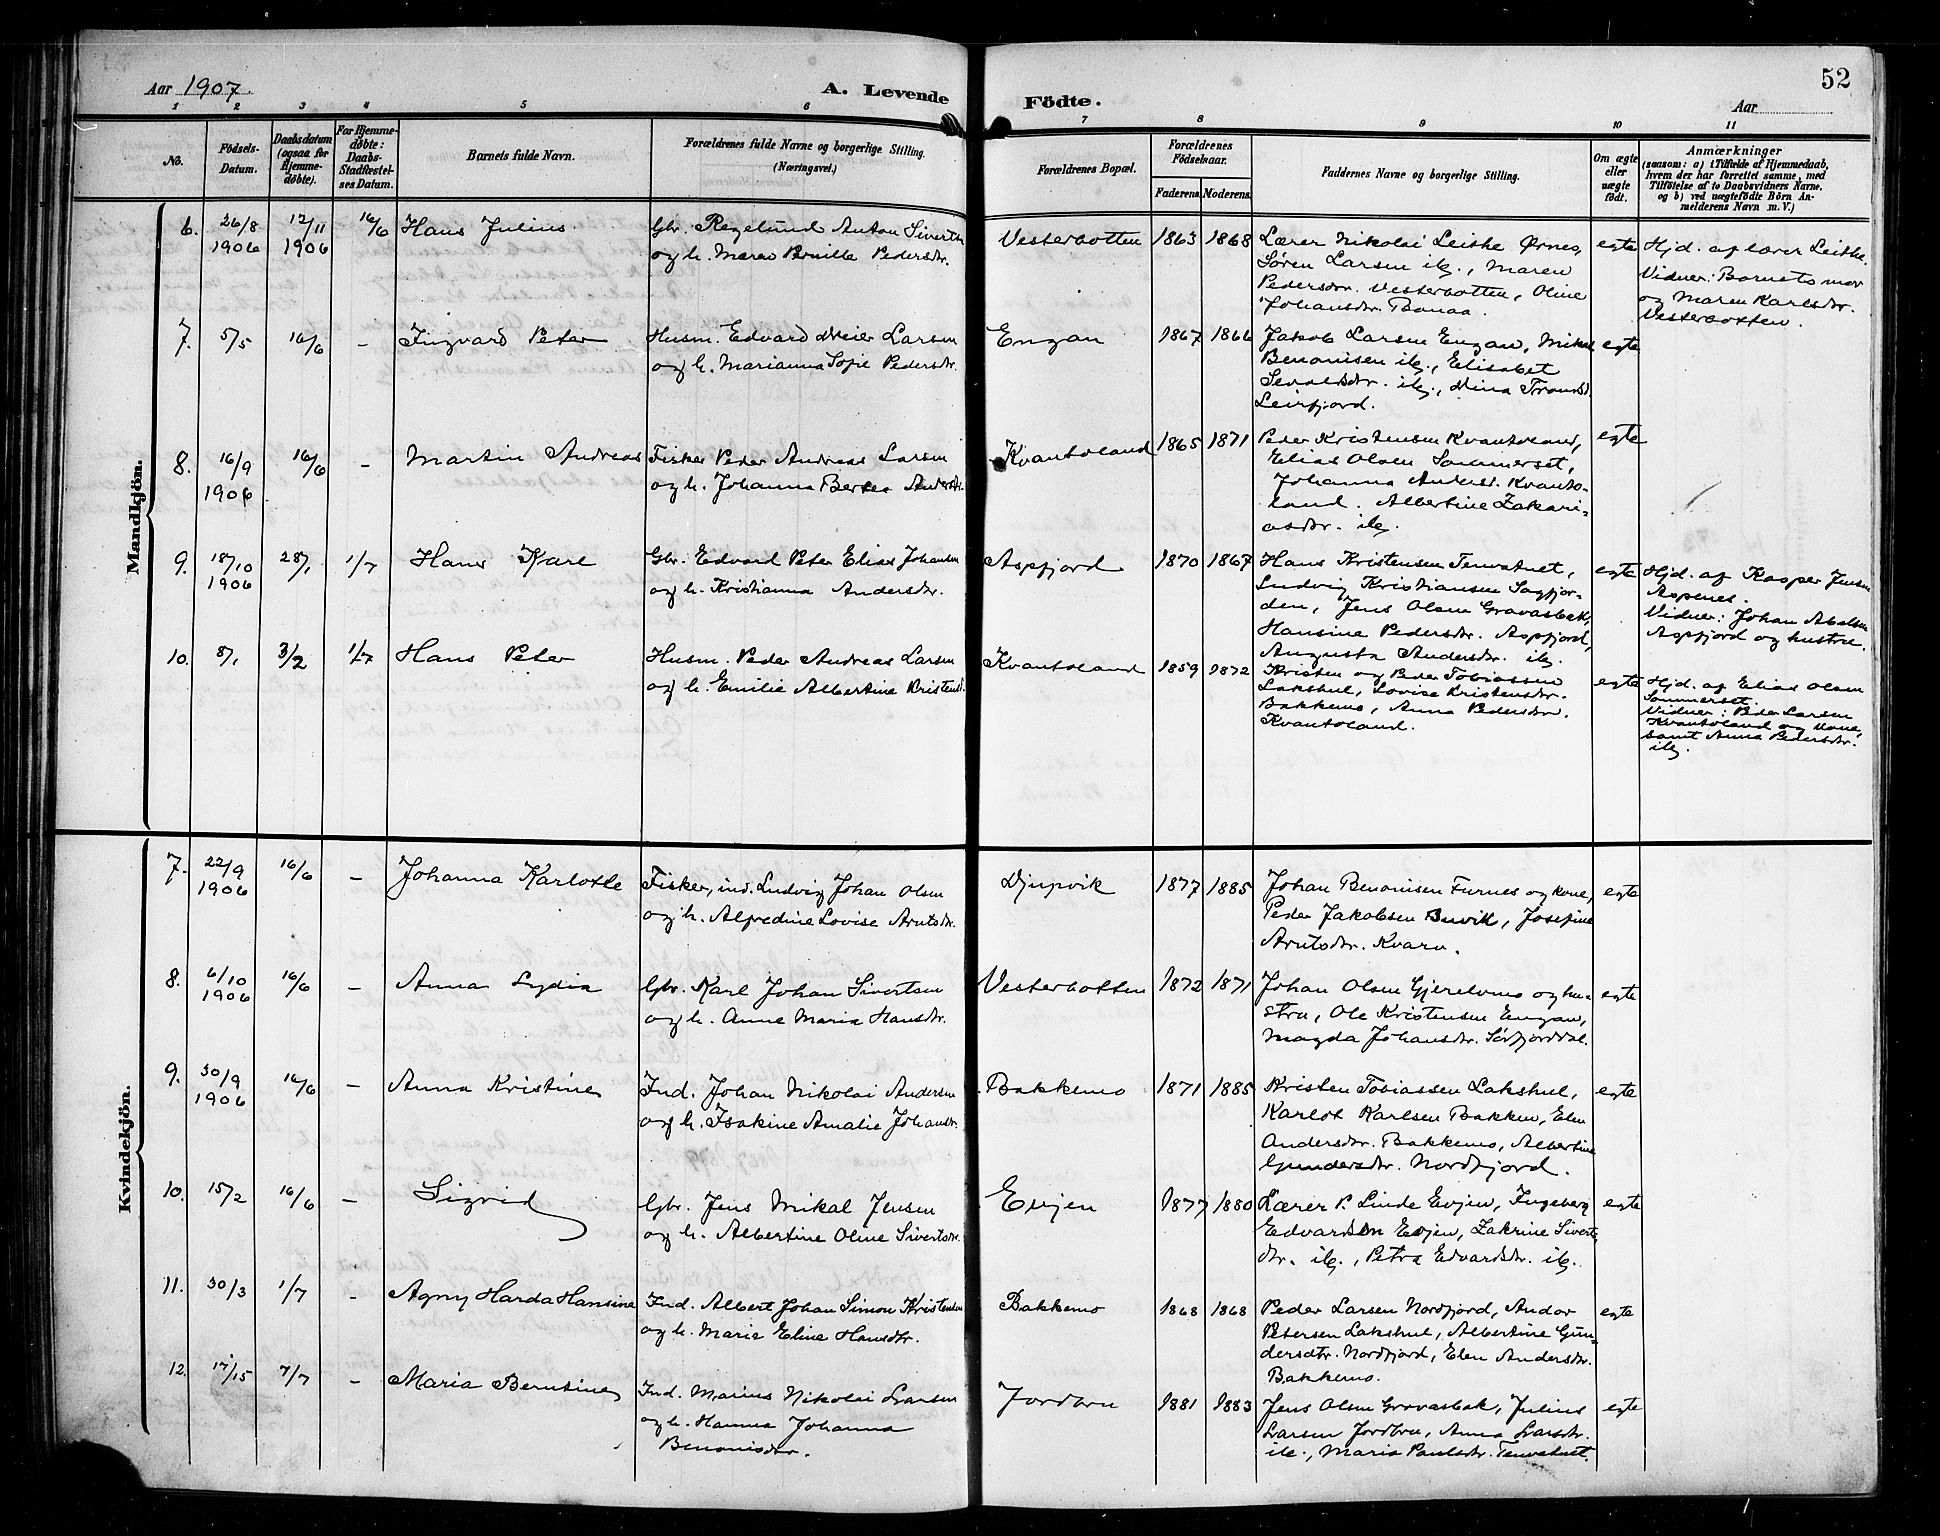 52
Aar 1907.
A. Levende Födte.
Aar
1 2 3 4 5 6 7 8 9 10 11
No.
Födsels-Datum.
Daabsdatum (ogsaa for Hjemmedöbte).
For Hjemmedöbte: Daabs-Stadfæstelses Datum.
Barnets fulde Navn.
Forældrenes fulde Navne og borgerlige Stilling. (Næringsvei.)
Forældrenes Bopæl.
Forældrenes Födselsaar.
Faderens. Moderens.
Faddernes Navne og borgerlige Stilling.
Om ægte eller uægte födt.
Anmærkninger
(saasom: a) i Tilfælde af Hjemmedaab,
hvem der har forrettet samme, med
Tilföielse af to Daabsvidners Navne,
og b) ved uægtefödte Börn An-
melderens Navn m. V.)
Mandkjön.
6. 26/8 1906 12/11 1906 16/6 Hans Julius.
Gbr. Regelund Anton Sivertsn
og h. Maren Pedersdtr.
Vesterbotten 1863 1868
Lærer Nikolai Leithe Ørnes,
Sören Larsen ib., Maren
Pedersdtr. Vesterbotten, Oline
Johansdtr. Bonaa.
egte
Hjd. af lærer Leithe.
Vidner: Barnets mor
og Maren Karlsdtr.
Vesterbotten.
7. 5/5 16/6 – Ingvard Peter
Husm. Edvard Meier Larsen
og h. Marianna Sofie Pedersdtr.
Engan 1867 1866
Jakob Larsen Engan, Mikal
Benonisen ib., Elisabet
Sevaldsdtr. ib., Dina Tronsd.
Leirfjord.
egte
8. 16/9 1906 16/6 – Martin Andreas
Fisker Peder Andreas Larsen
og h. Johanna Andersdtr.
Kvantoland 1865 1871
Peder Kristensen Kvantoland,
Elias Olsen Sommerset,
Johanna Andersd. Kvanto-
land. Albertine Zakari-
asdtr. ib.
egte
9. 18/10 1906 28/1 1/7 Hans Karl
Gbr. Edvard Peter Elias Johansen
og h. Kristianna Andersdtr.
Aspfjord 1870 1867
Hans Kristensen Tennvatnet,
Ludvig Kristiansen Sagfjor-
den, Jens Olsen Gravasbak,
Hansine Pedersdtr. Aspfjord,
Augusta Andersdtr. ib.
egte
Hjd. af Kasper Jensen
Aspenes.
Vidner: Johan Abelsen
Aspfjord og hustru.
10. 8/1 3/2 1/7 Hans Peter
Husm. Peder Andreas Larsen
og h. Emilie Albertine Kristensd.
Kvantoland 1859 1872
Kristen og Peder Tobiassen
Lakshul, Lovise Kristensdtr.
Bakkemo, Anna Pedersdtr.
Kvantoland.
egte
Hjd. af Elias Olsen
Sommerset.
Vidner: Peder Larsen
Kvantoland og kone,
samt Anna Pedersdtr.
ib.
Kvindekjön.
7. 22/9 1906 16/6 – Johanna Karlotte
Fisker, ind. Ludvig Johan Olsen
og h. Alfredine Lovise Arntsdtr.
Djupvik 1877 1885
Johan Benonisen Furnes og kone,
Peder Jakobsen Buvik, Josefine
Arntsdtr. Kvarv.
egte
8. 6/10 1906 16/6 – Anna Lydia
Gbr. Karl Johan Sivertsen
og h. Anne Maria Hansdtr.
Vesterbotten 1872 1871
Johan Olsen Gjerelvmo og hu-
stru, Ole Kristensen Engan,
Magda Johansdtr. Sörfjorddal.
egte
9. 30/9 1906 16/6 – Anna Kristine
Ind. Johan Nikolai Andersen
og h. Isakine Amalie Johansdtr.
Bakkemo 1871 1885
Kristen Tobiassen Lakshul,
Karlot Karlsen Bakken, Elen
Andersdtr. Bakkemo, Albertine
Gundersdtr. Nordfjord.
egte
10. 15/2 16/6 – Sigrid
Gbr. Jens Mikal Jensen
og h. Albertine Oline Sivertsdtr.
Evjen 1877 1880
Lærer P. Linde Evjen, Ingeberg
Edvardsen Evjen, Zakrine Siverts-
dtr. ib., Petra Edvardsdtr. ib.
egte
11. 30/3 1/7 – Agny Harda Hansine
Ind. Albert Johan Simon Kristensen
og h. Marie Eline Hansdtr.
Bakkemo 1868 1868
Peder Larsen Nordfjord, Andor
Petersen Lakshul, Albertine Gun-
dersdtr. Nordfjord, Elen Andersdtr.
Bakkemo.
egte
12. 17/15 7/7 – Maria Berntine
Ind. Marius Nikolai Larsen
og h. Hanna Johanna
Benonisdtr.
Jordbru 1881 1883
Jens Olsen Gravasbak, Julius
Larsen Jordbru, Anna Larsdtr.
ib., Maria Paulsdtr. Tennvatnet.
egte